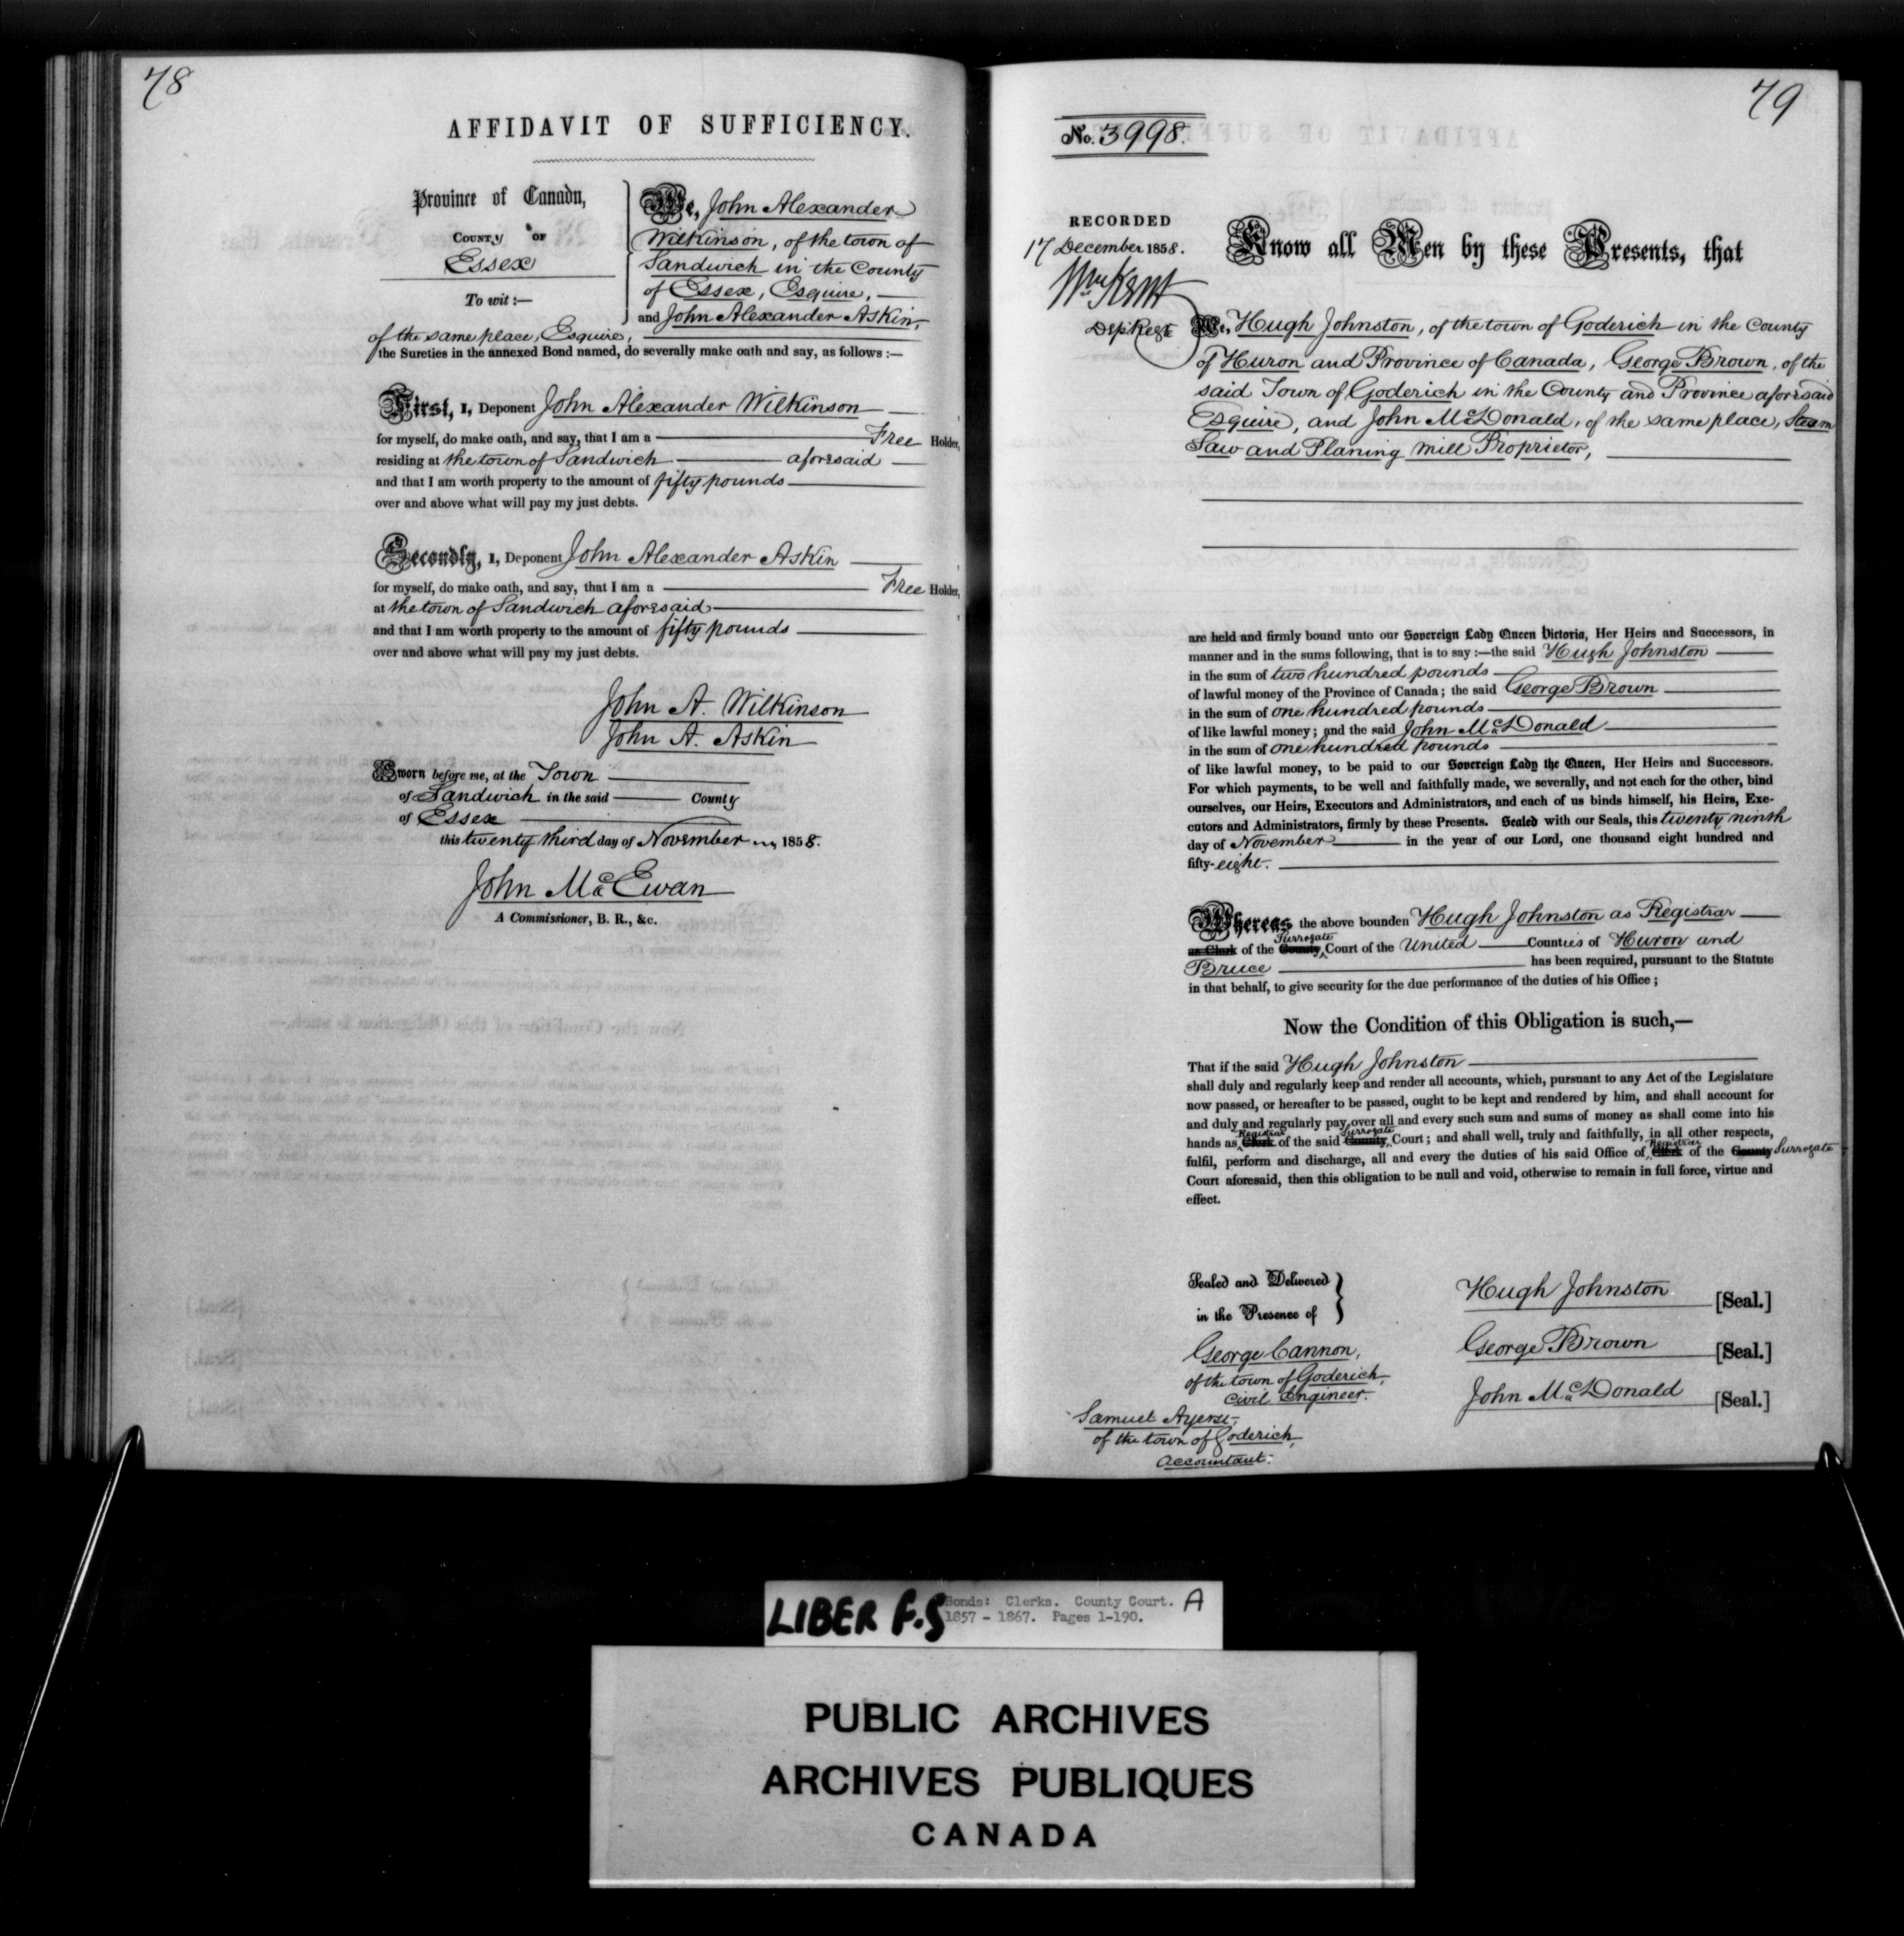 78
AFFIDAVIT OF SUFFICIENCY.
Province of Canada,
COUNTY OF
Essex
To wit :—
We, John Alexander
Wilkinson, of the town of
Sandwich in the County
of Essex, Esquire,
and John Alexander Askin,
of the same place, Esquire,
the Sureties in the annexed Bond named, do severally make oath and say, as follows :—
First, I, Deponent John Alexander Wilkinson
for myself, do make oath, and say, that I am a Free Holder,
residing at the town of Sandwich aforesaid
and that I am worth property to the amount of fifty pounds
over and above what will pay my just debts.
Secondly, I, Deponent John Alexander Askin
for myself, do make oath, and say, that I am a Free Holder,
at the town of Sandwich aforesaid
and that I am worth property to the amount of fifty pounds
over and above what will pay my just debts.
John A. Wilkinson
John A. Askin
Sworn before me, at the Town
of Sandwich in the said County
of Essex
this twenty third day of November 1858.
John McEwan
A Commissioner, B. R., &c.
79
No. 3998.
RECORDED
17 December 1858.
Wm Kent
Dep Regt
Know all Men by these Presents, that
We, Hugh Johnston, of the town of Goderich in the County
of Huron and Province of Canada, George Brown, of the
said Town of Goderich in the County and Province aforesaid
Esquire, and John McDonald, of the same place, Steam
Saw and Planing Mill Proprietor,
are held and firmly bound unto our Sovereign Lady Queen Victoria, Her Heirs and Successors, in
manner and in the sums following, that is to say :—the said Hugh Johnston
in the sum of two hundred pounds
of lawful money of the Province of Canada; the said George Brown
in the sum of one hundred pounds
of like lawful money; and the said John McDonald
in the sum of one hundred pounds
of like lawful money, to be paid to our Sovereign Lady the Queen, Her Heirs and Successors.
For which payments, to be well and faithfully made, we severally, and not each for the other, bind
ourselves, our Heirs, Executors and Administrators, and each of us binds himself, his Heirs, Exe-
cutors and Administrators, firmly by these Presents. Sealed with our Seals, this twenty ninth
day of November in the year of our Lord, one thousand eight hundred and
fifty-eight.
Whereas the above bounden Hugh Johnston as Registrar
as Clerk of the County Surrogate Court of the United Counties of Huron and
Bruce has been required, pursuant to the Statute
in that behalf, to give security for the due performance of the duties of his Office ;
Now the Condition of this Obligation is such,—
That if the said Hugh Johnston
shall duly and regularly keep and render all accounts, which, pursuant to any Act of the Legislature
now passed, or hereafter to be passed, ought to be kept and rendered by him, and shall account for
and duly and regularly pay over all and every such sum and sums of money as shall come into his
hands as Registrar Clerk of the said Surrogate County Court; and shall well, truly and faithfully, in all other respects,
fulfil, perform and discharge, all and every the duties of his said Office of Registrar Clerk of the County Surrogate
Court aforesaid, then this obligation to be null and void, otherwise to remain in full force, virtue and
effect.
Sealed and Delivered
in the Presence of
George Cannon,
of the town of Goderich,
Civil Engineer.
Samuel Ayerst,
of the town of Goderich,
Accountant.
Hugh Johnston [Seal.]
George Brown [Seal.]
John McDonald [Seal.]
LIBER F.S
Bonds: Clerks. County Court. A
1857 - 1867. Pages 1-190.
PUBLIC ARCHIVES
ARCHIVES PUBLIQUES
CANADA